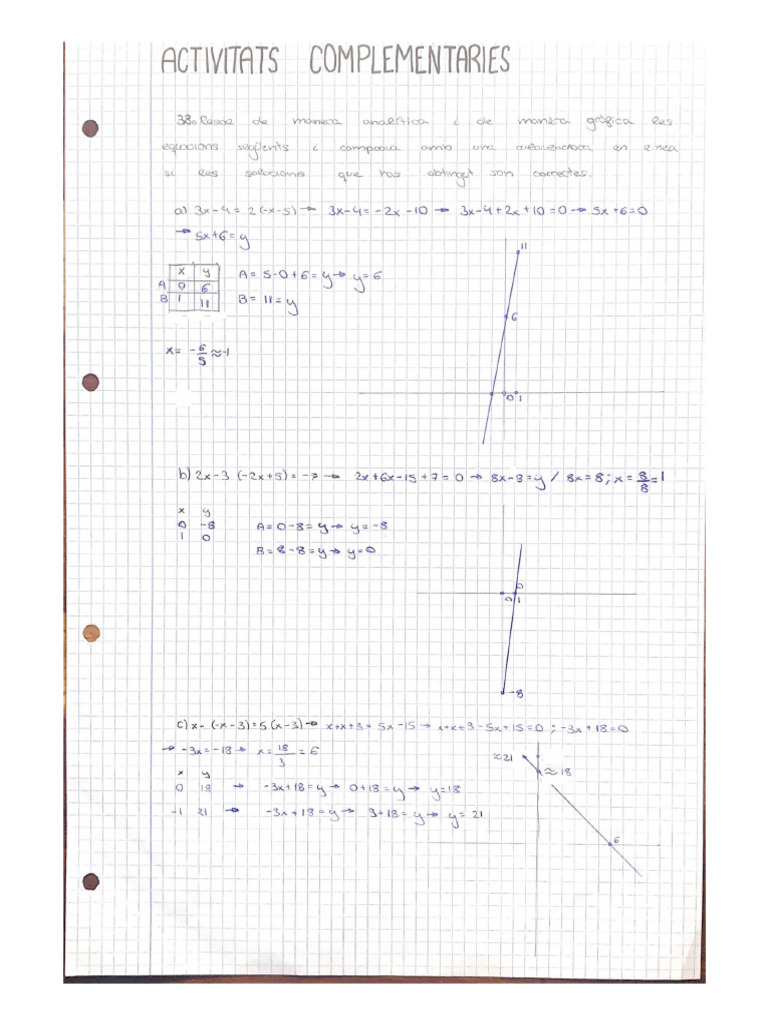 ACTIVITATS COMPLEMENTARIES
38. Resol de manera analítica i de manera gràfica les
equacions següents i comprova amb una calculadora en línea
si les solucions que has obtingut son correctes.
a) 3x-4 = 2(-x-5) → 3x-4 = -2x-10 → 3x-4+2x+10=0 → 5x+6=0
→ 5x+6=y
x y
A 0 6
B 1 11
A = 5·0+6=y → y=6
B = 11=y
x = -6/5 ≈ -1
11
6
0 1
b) 2x-3 (-2x+5) = -7 → 2x+6x-15+7=0 → 8x-8=y / 8x=8; x=8/8=1
x y
0 -8
1 0
A = 0-8=y → y=-8
B = 8-8=y → y=0
0
0 1
-8
c) x-(-x-3)=5(x-3) → x+x+3=5x-15 → x+x+3-5x+15=0; -3x+18=0
→ -3x=-18 → x=18/3=6
x y
0 18 → -3x+18=y → 0+18=y → y=18
-1 21 → -3x+18=y → 3+18=y → y=21
≈21
≈18
6